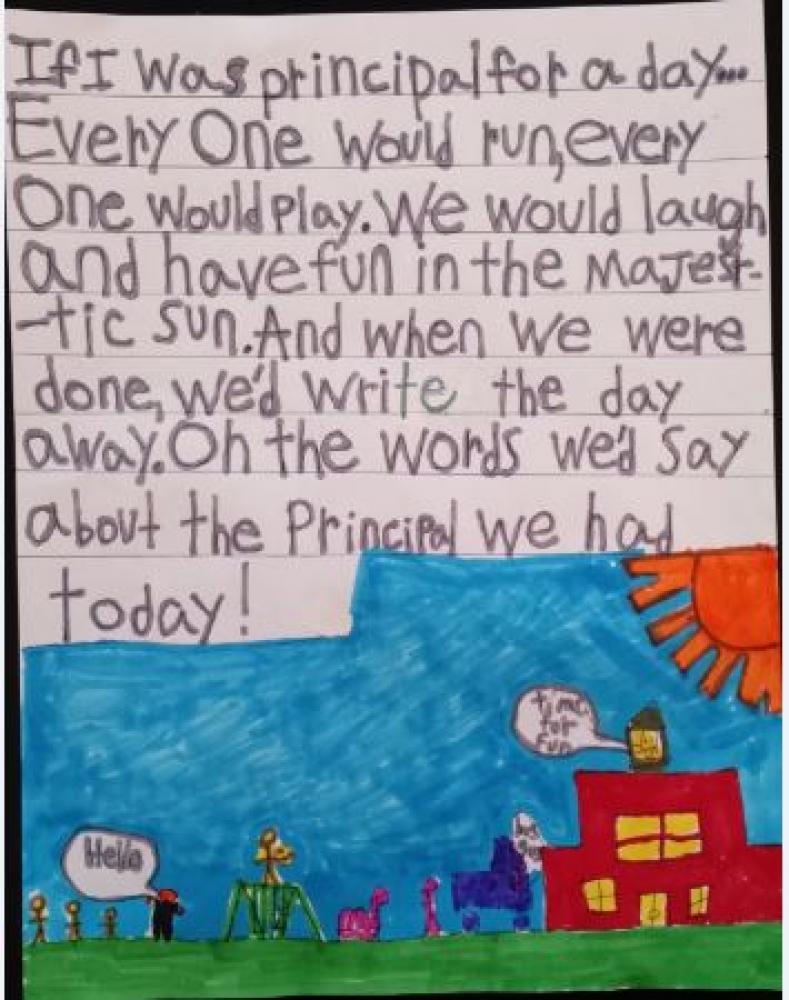 If I was principal for a day...
Every One would run, every
One would play. We would laugh
and have fun in the Majest-
-tic sun. And when we were
done, we'd write the day
away. Oh the words we'd say
about the Principal we had
today!
time
for
fun
Hello